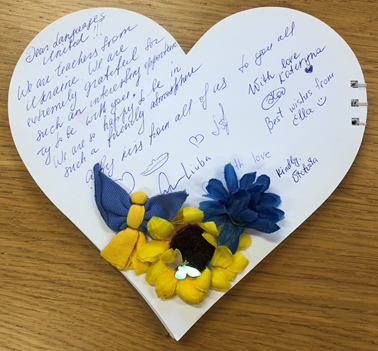 Dear Languages
United!!!
We are teachers from
Ukraine. We are
extremely grateful for
such an interesting opportuni
ty to be with you.
We are so happy to be in
such a friendly atmosphere
kiss from all of us
to you all
With love
Kateryna
Best wishes from
Ella
Liuba
love
Kindly,